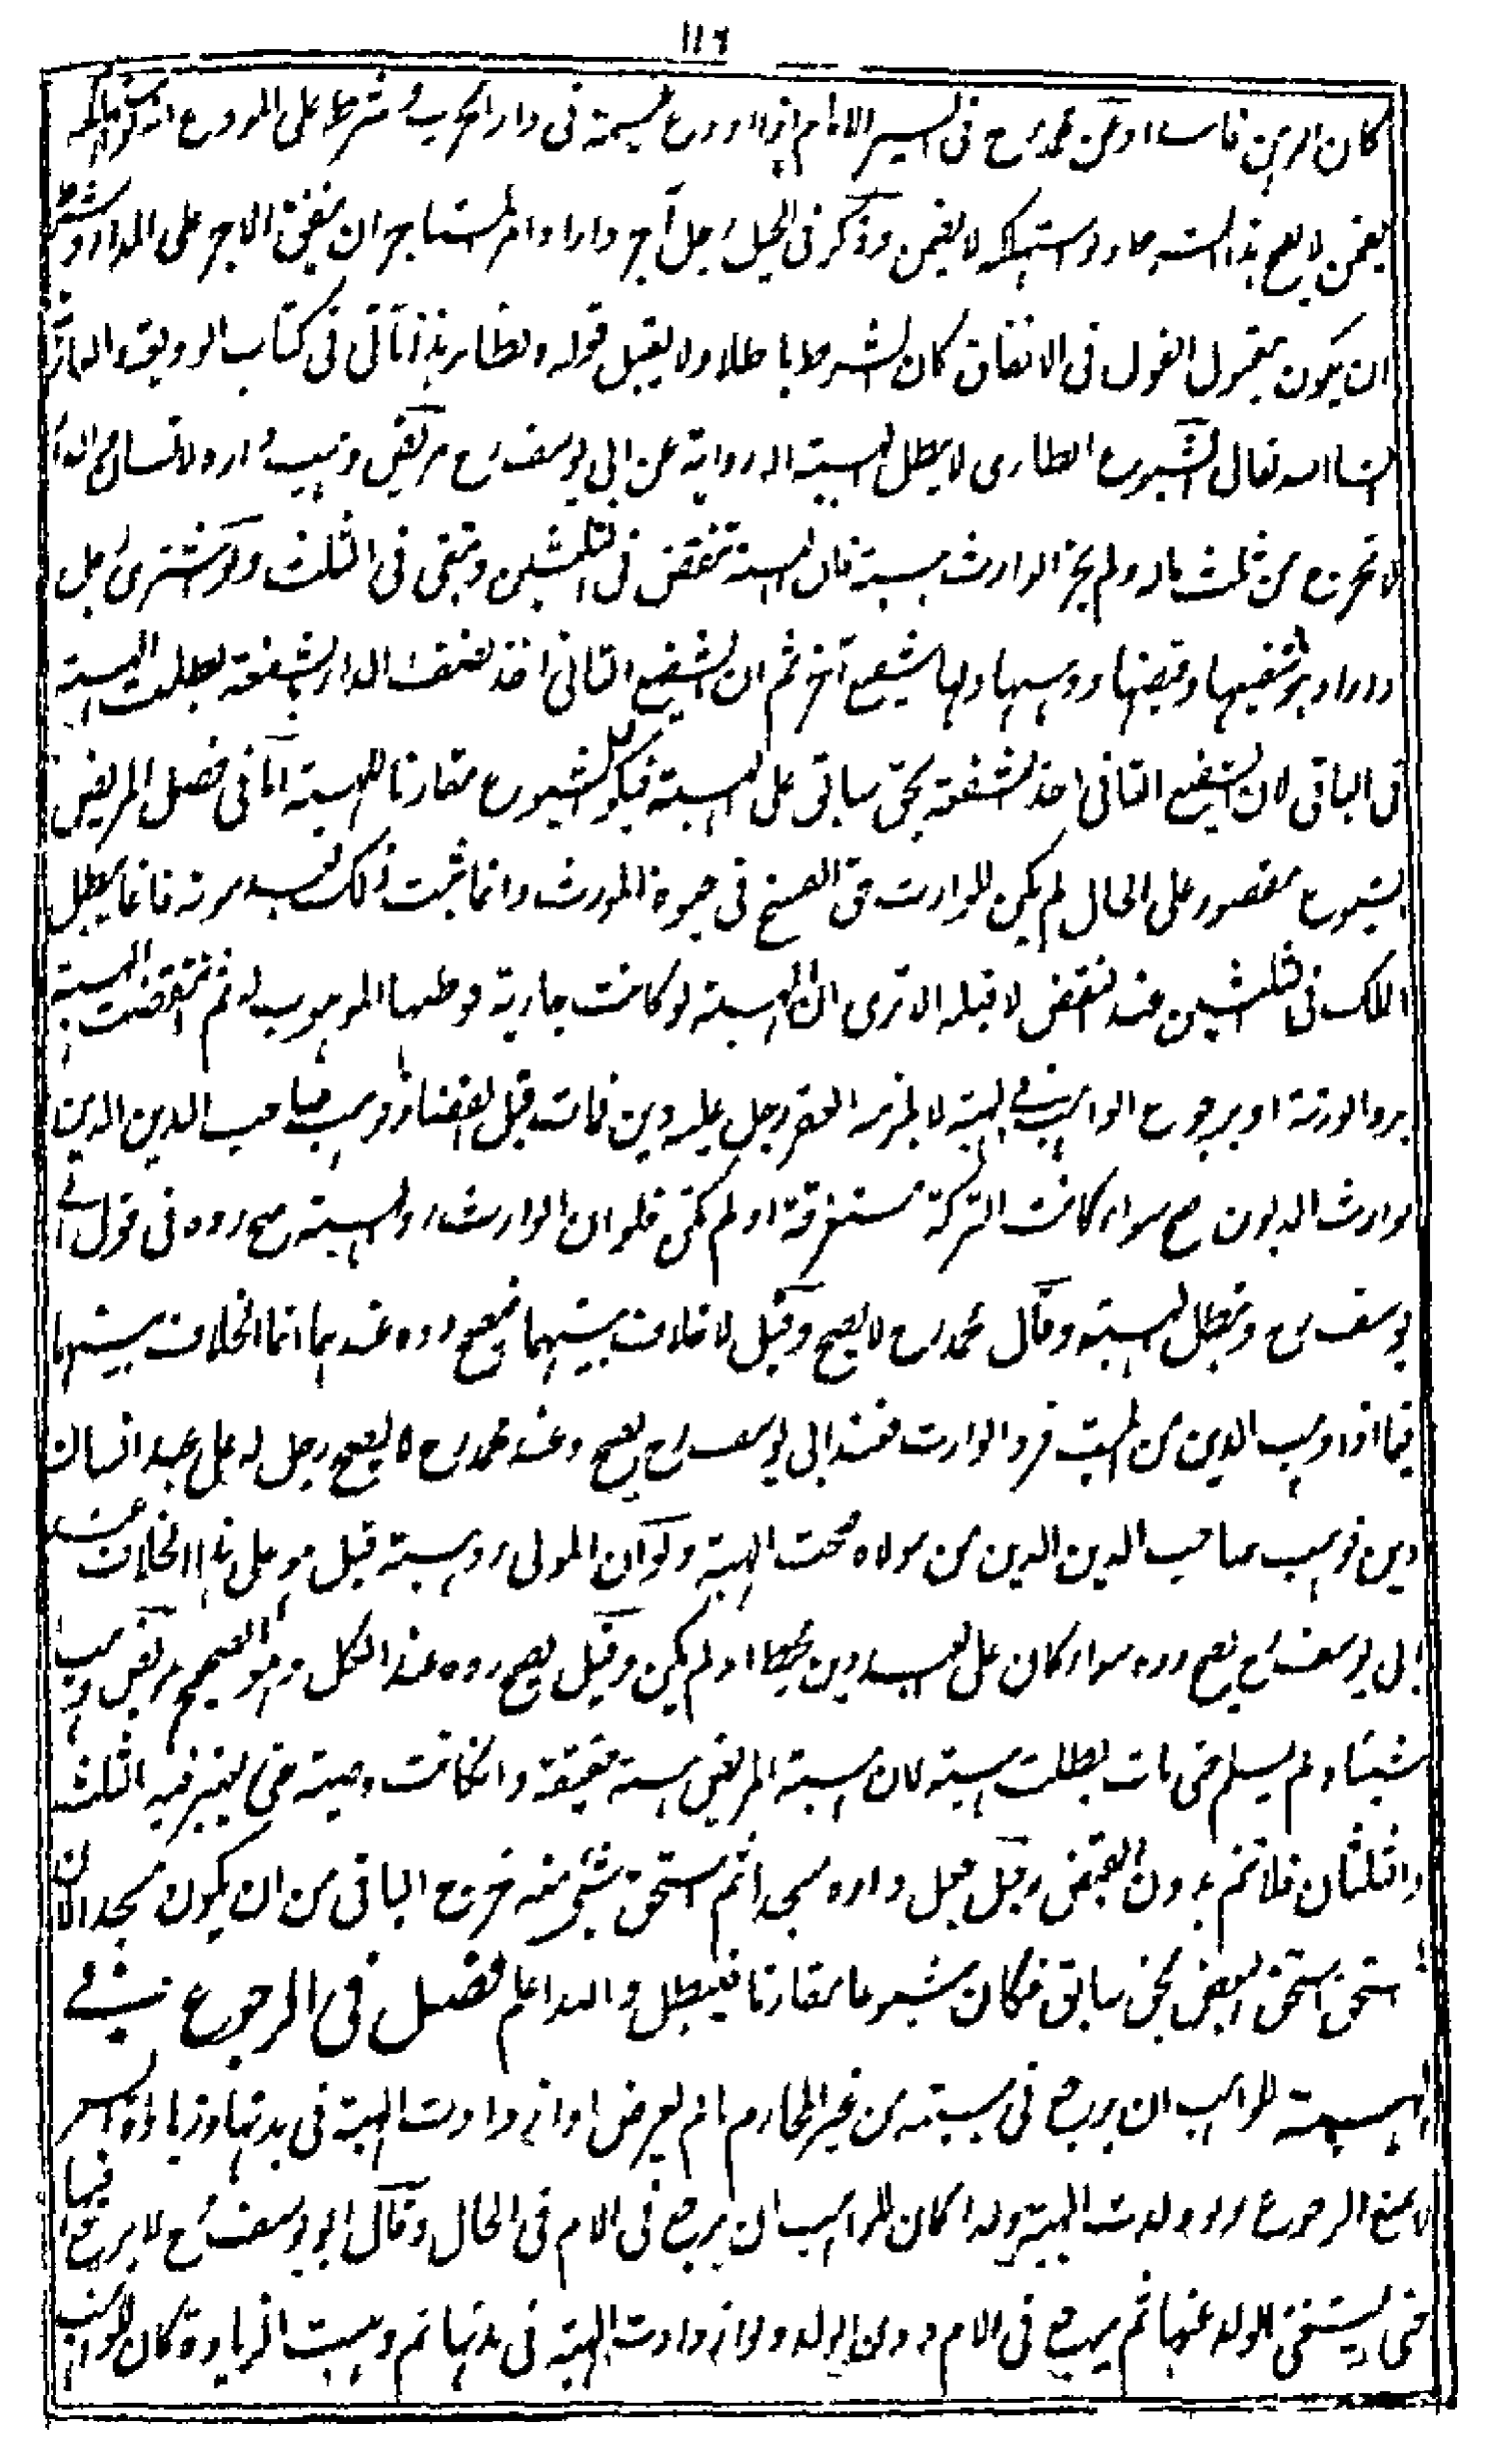 ١١٦
كان الرهن فاسدا وعن محمد رح فى السير الامام اذا اودع شيئا فى دار الحرب وشرط على المودع ان استهلكه
يضمن لا يصح هذا الشرط ولو استهلكه لا يضمن وذكر فى الحيل رجل آجر دارا وامر المستاجر ان ينفق الاجر على الدار وشرط
ان يكون مقبول القول فى الانفاق كان الشرط باطلا ولا يقبل قوله ونظائر هذا تاتى فى كتاب الوديعة
ان شاء الله تعالى الشيوع الطارى لا يبطل الهبة الا رواية عن ابى يوسف رح مريض وهب داره لانسان ثم ان الدار
لا تخرج من ثلث ماله ولم يجز الوارث هبته فان الهبة تنتقض فى الثلثين وتبقى فى الثلث ولو اشترى رجل
دارا وهو شفيعها وقبضها ووهبها ولها شفيع آخر ثم ان الشفيع الثانى اخذ نصف الدار بالشفعة بطلت الهبة
فى الباقى لان الشفيع الثانى اخذ بالشفعة بحق سابق على الهبة فيكون الشيوع مقارنا للهبة اما فى فصل المريض
الشيوع مقصور على الحال لم يكن للوارث حق الفسخ فى حيوة المورث وانما ثبت ذلك بعد موته فانما يبطل
الملك فى الثلثين عند النقض لا قبله الا ترى ان الهبة لو كانت جارية فوطئها الموهوب له ثم انتقضت الهبة
برد الورثة او برجوع الواهب فى الهبة لا يلزمه العقر رجل عليه دين فمات قبل القضاء فوهب صاحب الدين الدين
لوارث المديون صح سواء كانت التركة مستغرقة او لم تكن فلو ان الوارث رد الهبة صح رده فى قول ابى
يوسف رح وتبطل الهبة وقال محمد رح لا يصح وقيل لا خلاف بينهما فيصح رده عندهما انما الخلاف بينهما
فيما اذا وهب الدين من الميت فرد الوارث فعند ابى يوسف رح يصح وعند محمد رح لا يصح رجل له على عبد انسان
دين فوهب صاحب الدين الدين من مولاه صحت الهبة ولو ان المولى رد هبته قيل هو على هذا الخلاف عند
ابى يوسف رح يصح رده سواء كان على العبد دين محيط او لم يكن وقيل يصح رده عند الكل وهو الصحيح مريض وهب
شيئا ولم يسلم حتى مات بطلت هبته لان هبة المريض هبة حقيقة وان كانت وصية حتى يعتبر فيه الثلث
والثلثان فلا تتم بدون القبض رجل جعل داره مسجدا ثم استحق شئ منه خرج الباقى من ان يكون مسجدا لان
المستحق يستحق البعض بحق سابق فكان شيوعا مقارنا فيبطل والله اعلم فصل فى الرجوع فى
الهبة للواهب ان يرجع فى هبته من غير المحارم ما لم يعوض او ازدادت الهبة فى بدنها وزيادة السعر
لا تمنع الرجوع ولو ولدت الهبة ولدا كان للواهب ان يرجع فى الام فى الحال وقال ابو يوسف رح لا يرجع فيها
حتى يستغنى الولد عنها ثم يرجع فى الام دون الولد ولو ازدادت الهبة فى بدنها ثم ذهبت الزيادة كان للواهب